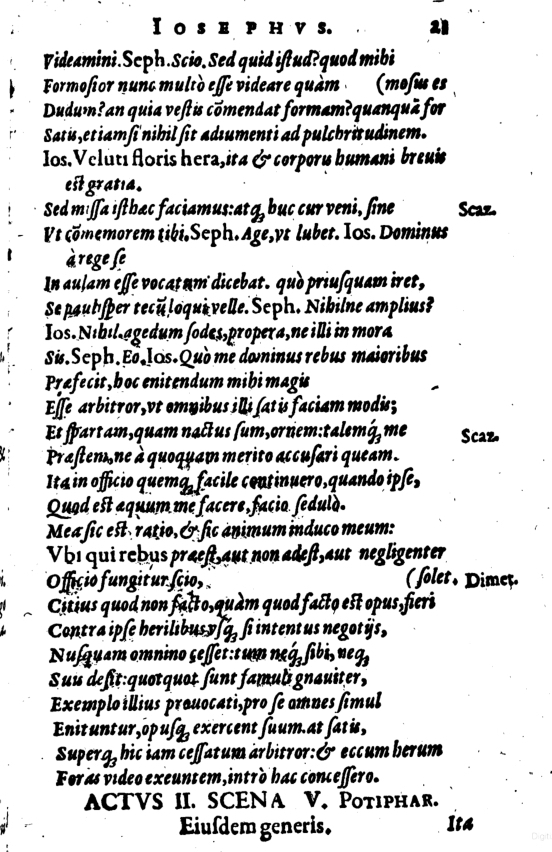 IOSEPHVS. 21
Videamini. Seph. Scio. Sed quid iſtud? quod mihi
Formoſior nunc multò eſſe videare quàm (moſus es
Dudum? an quia veſtis cõmendat formam? quanquã for
Satis, etiamſi nihil ſit adiumenti ad pulchritudinem.
Ios. Veluti floris hera, ita & corporis humani breuis
eſt gratia.
Sed miſſa iſthæc faciamus: atq; huc cur veni, ſine Scaz.
Vt cõmemorem tibi. Seph. Age, vt lubet. Ios. Dominus
à rege ſe
In aulam eſſe vocatum dicebat. quò priuſquam iret,
Se paubſper tecũ loqui velle. Seph. Nihilne amplius?
Ios. Nihil. agedum ſodes, propera, ne illi in mora
Sis. Seph. Eo. Ios. Quò me dominus rebus maioribus
Præfecit, hoc enitendum mihi magis
Eſſe arbitror, vt omnibus illi ſatis faciam modis;
Et ſpartam, quam nactus ſum, ornem: talemq́; me Scaz.
Præſtem, ne à quoquam merito accuſari queam.
Ita in officio quemq; facile continuero, quando ipſe,
Quod eſt æquum me facere, facio ſedulò.
Mea ſic eſt ratio, & ſic animum induco meum:
Vbi qui rebus præeſt, aut non adeſt, aut negligenter
Officio fungitur ſcio, (ſolet. Dimet.
Citius quod non facto, quàm quod facto eſt opus, fieri
Contra ipſe herilibus vſq; ſi intentus negotijs,
Nuſquam omnino ceſſet: tum neq́; ſibi, neq;
Suis deſit: quotquot ſunt famuli gnauiter,
Exemplo illius prouocati, pro ſe omnes ſimul
Enituntur, opuſq; exercent ſuum. at ſatis,
Superq; hic iam ceſſatum arbitror: & eccum herum
Foras video exeuntem, intrò hac conceſſero.
ACTVS II. SCENA V. POTIPHAR.
Eiuſdem generis. Ita